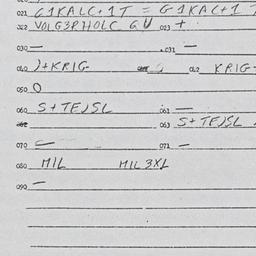 021 G1KALC+1T = G1KAC+1T
022 VOLG3RHOLC GU 023 +
030 — 031 —
040 )+KRIG 042 KRIG-
050 O
060 S+TEJSL 061 —
063 S+TEJSL
070 — 071 —
080 MIL MIL 3XL
090 —